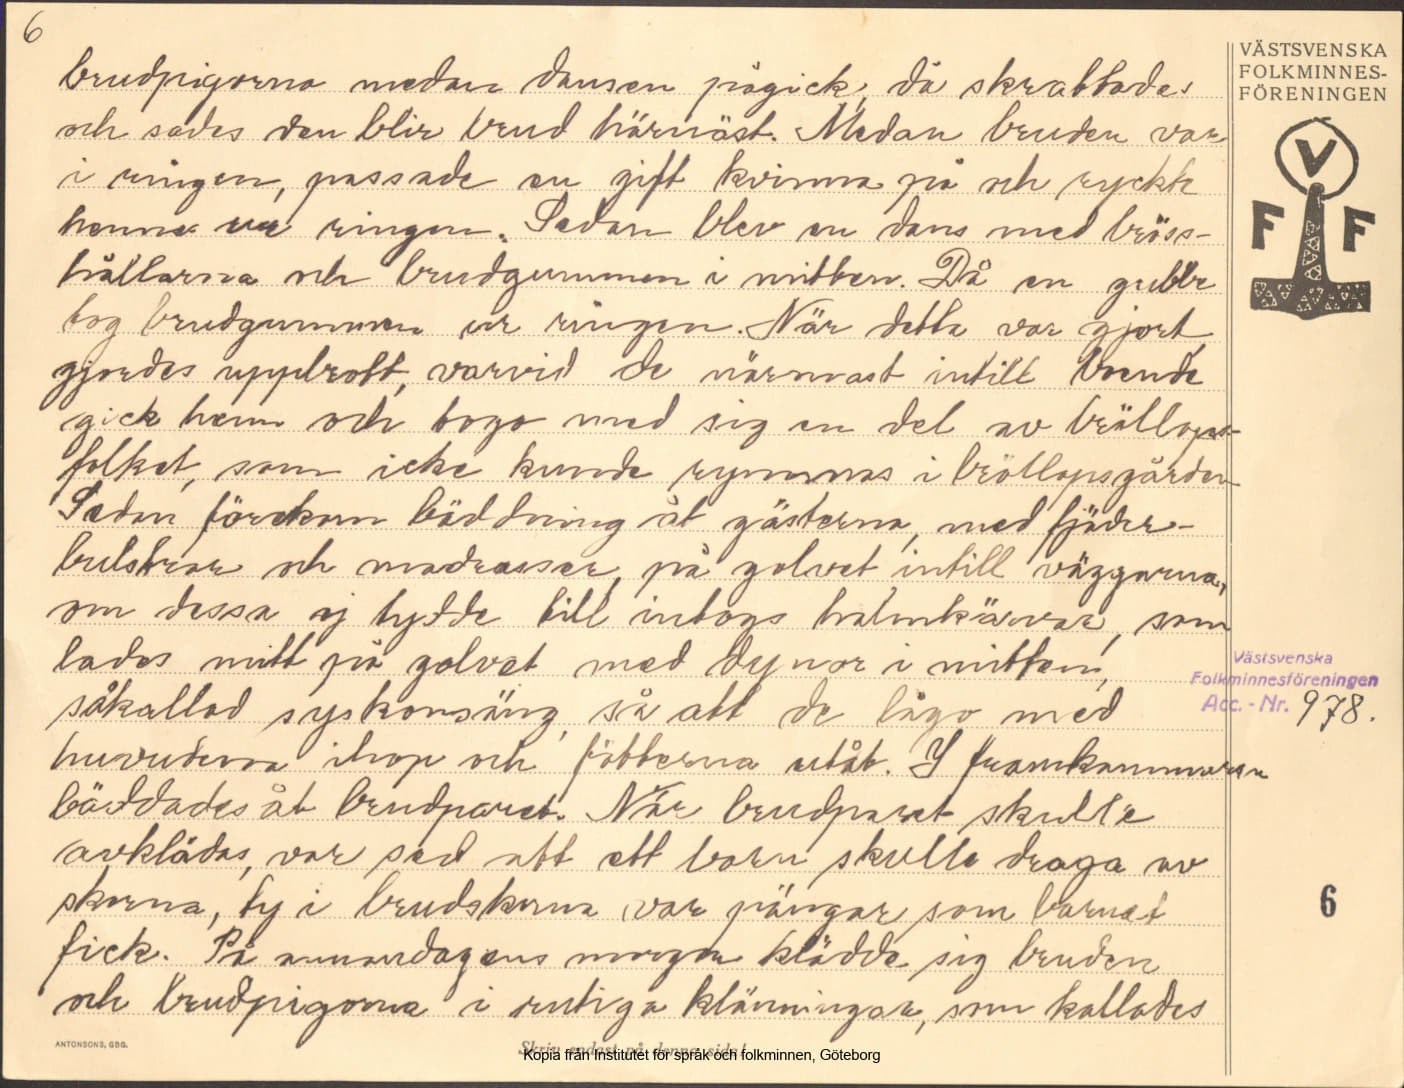 6
brudpigorna medan dansen pågick, då skrattades
och sades den blir brud härnäst. Medan bruden var
i ringen, passade en gift kvinna på och ryckte
henne ur ringen. Sedan blev en dans med bröss-
hållarna och brudgummen i mitten. Då en gubbe
tog brudgummen ur ringen. När detta var gjort,
gjordes uppbrott, varvid de närmast intill boende
gick hem och togo med sig en del av bröllops-
folket, som icke kunde rymmas i bröllopsgården
Sedan förekom bäddning åt gästerna, med fjäder-
bulstrar och madrasser, på golvet intill väggarna,
om dessa ej tydde till intogs halmkärvar, som
lades mitt på golvet med dynor i mitten,
såkallad syskonsäng, så att de lågo med
huvudena ihop och fötterna utåt. I framkammaren
bäddades åt brudparet. När brudparet skulle
avklädas, var sed att ett barn skulle draga av
skorna, ty i brudskorna var pängar som barnet
fick. På annandagens morgon klädde sig bruden
och brudpigorna i rutiga klänningar, som kallades
VÄSTSVENSKA
FOLKMINNES-
FÖRENINGEN
V
F F
Västsvenska
Folkminnesföreningen
Acc.-Nr. 978.
6
ANTONSONS, GBG.
Skriv endast på denna sida!
Kopia från Institutet för språk och folkminnen, Göteborg